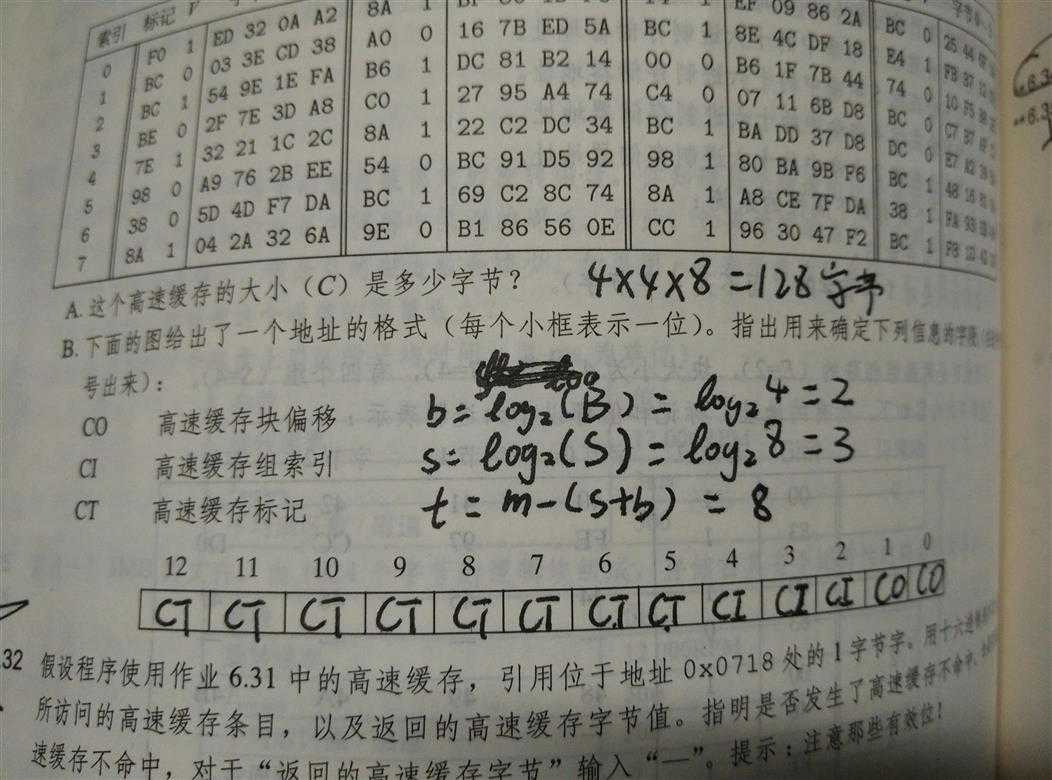 索引 标记 V 字节0-3
0 F0 1 ED 32 0A A2 8A 1 1 EF 09 86 2A BC 0 25 44
1 BC 0 03 3E CD 38 A0 0 16 7B ED 5A BC 1 8E 4C DF 18 E4 1 FB
2 BC 1 54 9E 1E FA B6 1 DC 81 B2 14 00 0 B6 1F 7B 44 74 0 10 F5
3 BE 0 2F 7E 3D A8 C0 1 27 95 A4 74 C4 0 07 11 6B D8 BC 0 C7 B7
4 7E 1 32 21 1C 2C 8A 1 22 C2 DC 34 BC 1 BA DD 37 D8 DC 0 E7 A2
5 98 0 A9 76 2B EE 54 0 BC 91 D5 92 98 1 80 BA 9B F6 BC 1 48 16
6 38 0 5D 4D F7 DA BC 1 69 C2 8C 74 8A 1 A8 CE 7F DA 38 1 FA 93
7 8A 1 04 2A 32 6A 9E 0 B1 86 56 0E CC 1 96 30 47 F2 BC 1 F8 1D
A. 这个高速缓存的大小（C）是多少字节？ 4×4×8=128字节
B. 下面的图给出了一个地址的格式（每个小框表示一位）。指出用来确定下列信息的字段
号出来）：
CO 高速缓存块偏移 b=log₂(B)=log₂4=2
CI 高速缓存组索引 s=log₂(S)=log₂8=3
CT 高速缓存标记 t=m-(s+b)=8
12 11 10 9 8 7 6 5 4 3 2 1 0
CT CT CT CT CT CT CT CT CI CI CI CO CO
.32 假设程序使用作业 6.31 中的高速缓存，引用位于地址 0x0718 处的 1 字节字。用十六进
所访问的高速缓存条目，以及返回的高速缓存字节值。指明是否发生了高速缓存不命中。
速缓存不命中，对于“返回的高速缓存字节”输入“—”。提示：注意那些有效位！